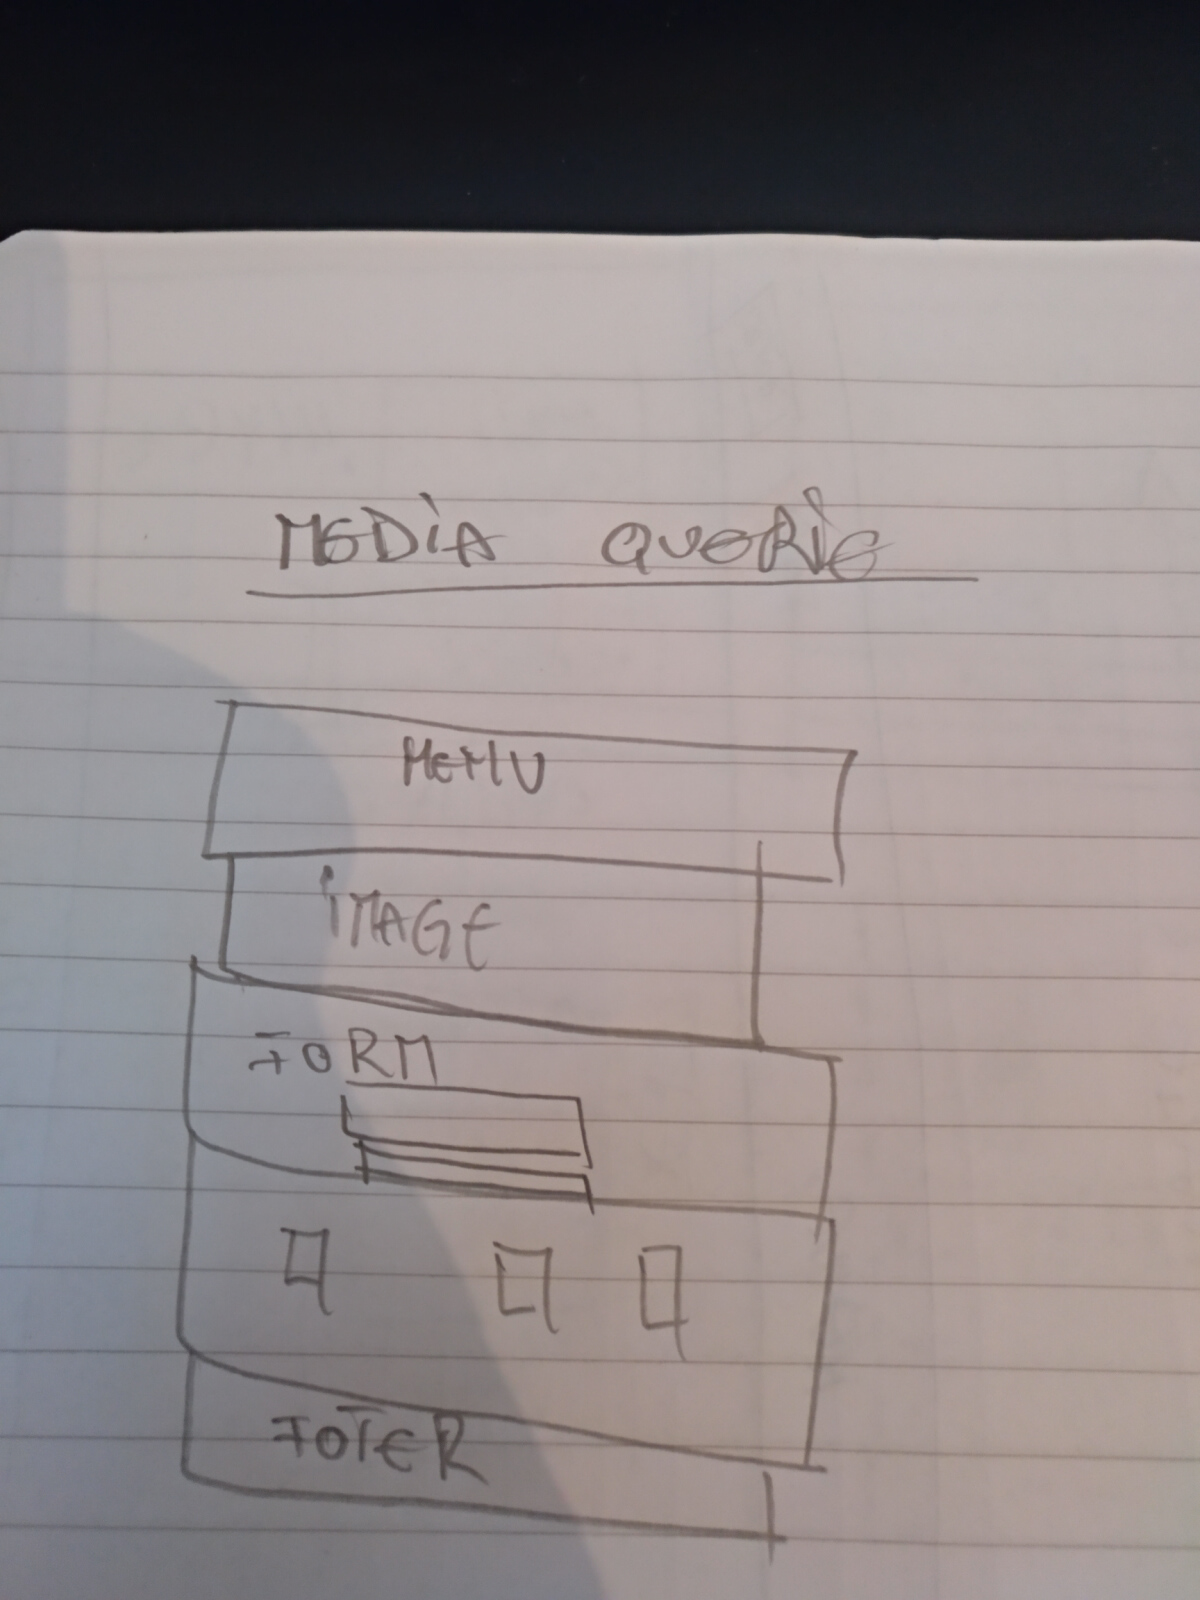 MEDIA QUERIE
MENU
IMAGE
FORM
FOTER